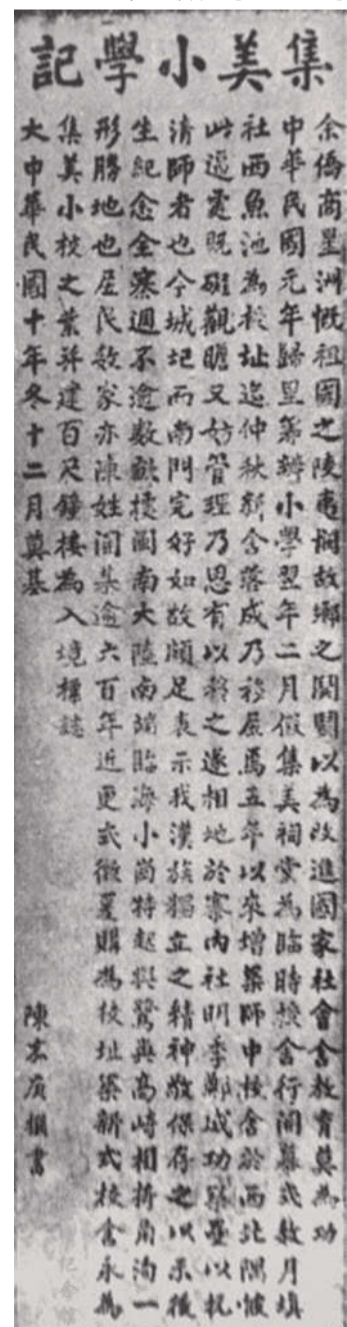 集美小學記
余僑商星洲慨祖國之陵夷憫故鄉之鬨鬭以為改進國家社會舍教育莫為功
中華民國元年歸里籌辦小學翌年二月假集美祠堂為臨時校舍行開幕式數月填
社西魚池為校址迨仲秋新舍落成乃移居焉五年以來增築師中校舍於西北隅惟
此逼處既礙觀瞻又妨管理乃思有以移之遂相地於寨內社明季鄭成功築壘以抗
清師者也今城圯而南門完好如故頗足表示我漢族獨立之精神敬保存之以示後
生紀念全寨週不逾數畝據閩南大陸南端臨海小崗特起與鷺與高崎相犄角洵一
形勝地也居民數家亦陳姓開集逾六百年近更式微爰購為校址築新式校舍永為
集美小校之業并建百尺鐘樓為入境標誌
大中華民國十年冬十二月奠基
陳嘉庚撰書